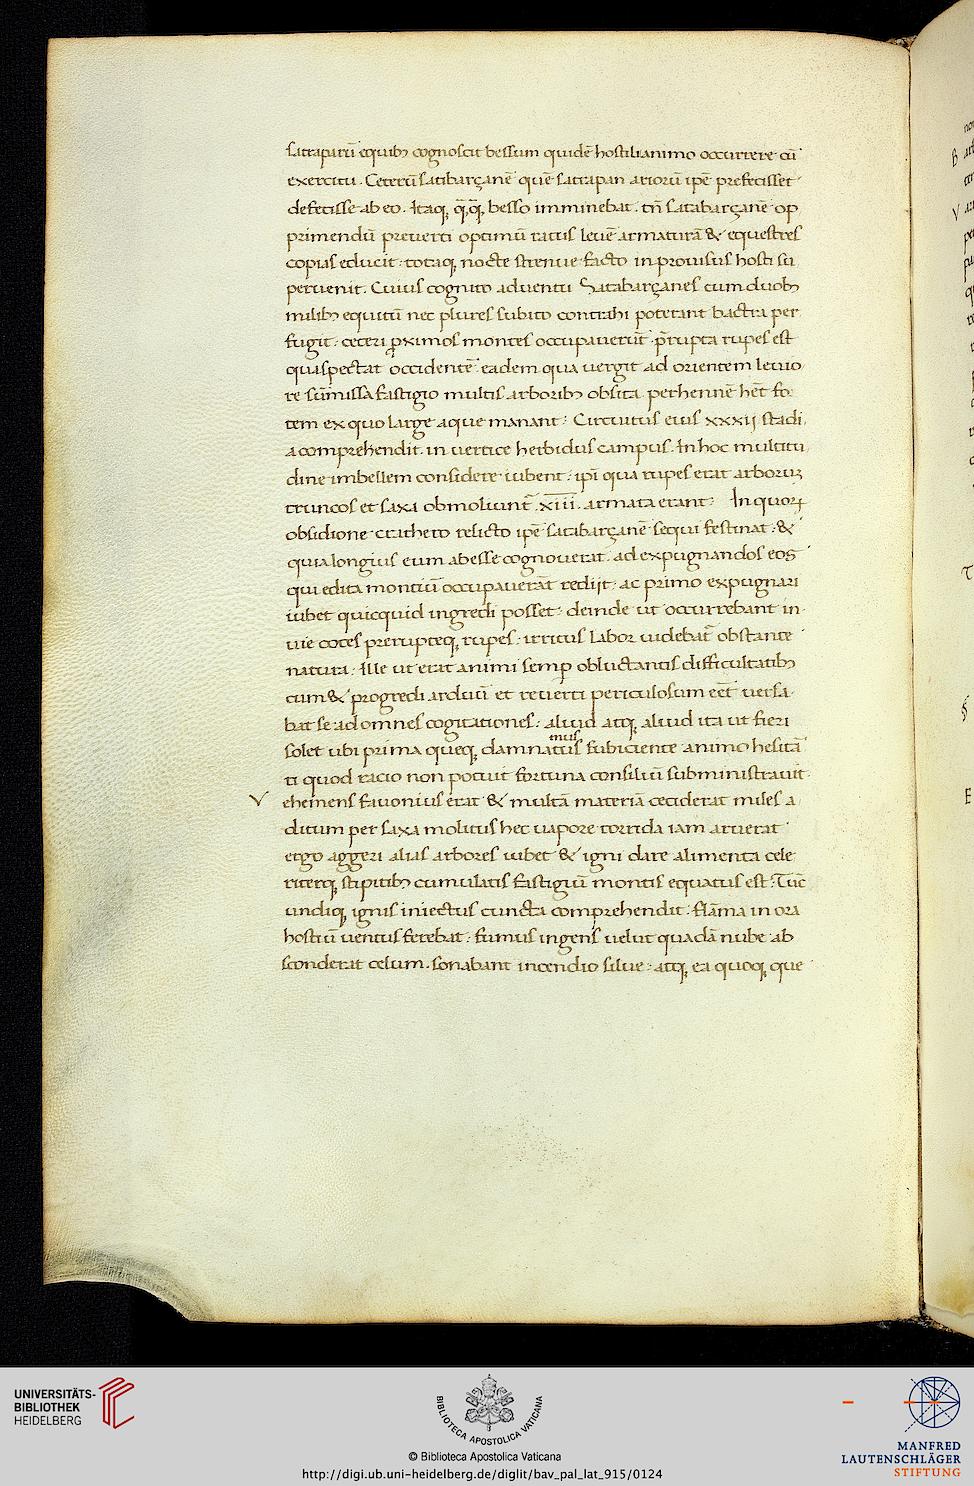 satraparū equib; cognoscit bessum quidē hostili animo occurrere cū
exercitu. Ceterū satibarçanē quē satrapan ariorū ipē prefecisset
defecisse ab eo. Itaq; q̄q̄ besso imminebat. tn̄ satabarçanē op
primendū preverti optimū ratus levē armaturā & equestres
copias educit: totaq; nocte strenue facto inprovisus hosti su
pervenit. Cuius cognito adventu Satabarçanes cum duob;
milib; equitū nec plures subito contrahi poterant bactra per
fugit: ceteri proximos montes occupaverūt. prerupta rupes est
qua spectat occidentē eadem qua vergit ad orientem levio
re sūmissa fastigio multis arborib; obsita perhennē hēt fo
tem ex quo large aque manant: Circuitus eius xxxij stadi
a comprehendit. in vertice herbidus campus. In hoc multitu
dine imbellem considere iubent: ipi qua rupes erat arborum
truncos et saxa obmoliunt̄ .xiii. armata erant: In quorum
obsidione crathero relicto ipē satabarçanē sequi festinat: &
quia longius eum abesse cognoverat. ad expugnandos eos
qui edita montiū occupaverāt redijt: ac primo expugnari
iubet quicquid ingredi posset: deinde ut occurrebant in
vie cotes prerupteq; rupes: irritus labor videbat̄ obstante
natura: Ille ut erat animi semp obluctantis difficultatib;
cum & progredi arduū et reverti periculosum eēt versa
bat se ad omnes cogitationes: aliud atq; aliud ita ut fieri
mus
solet ubi prima queq; damnatus subiciente animo hesitā
ti quod racio non potuit fortuna consiliū subministravit.
V ehemens favonius erat & multā materiā ceciderat miles a
ditum per saxa molitus hec vapore torrida iam aruerat
ergo aggeri alias arbores iubet & igni dare alimenta cele
riterq; stipitib; cumulatis fastigiū montis equatus est: Tūc
undiq; ignis iniectus cuncta comprehendit: flāma in ora
hostiū ventus ferebat: fumus ingens velut quadā nube ab
sconderat celum. sonabant incendio silve: atq; ea quoq; que
UNIVERSITÄTS-
BIBLIOTHEK
HEIDELBERG
BIBLIOTECA APOSTOLICA VATICANA
© Biblioteca Apostolica Vaticana
http://digi.ub.uni-heidelberg.de/diglit/bav_pal_lat_915/0124
MANFRED
LAUTENSCHLÄGER
STIFTUNG